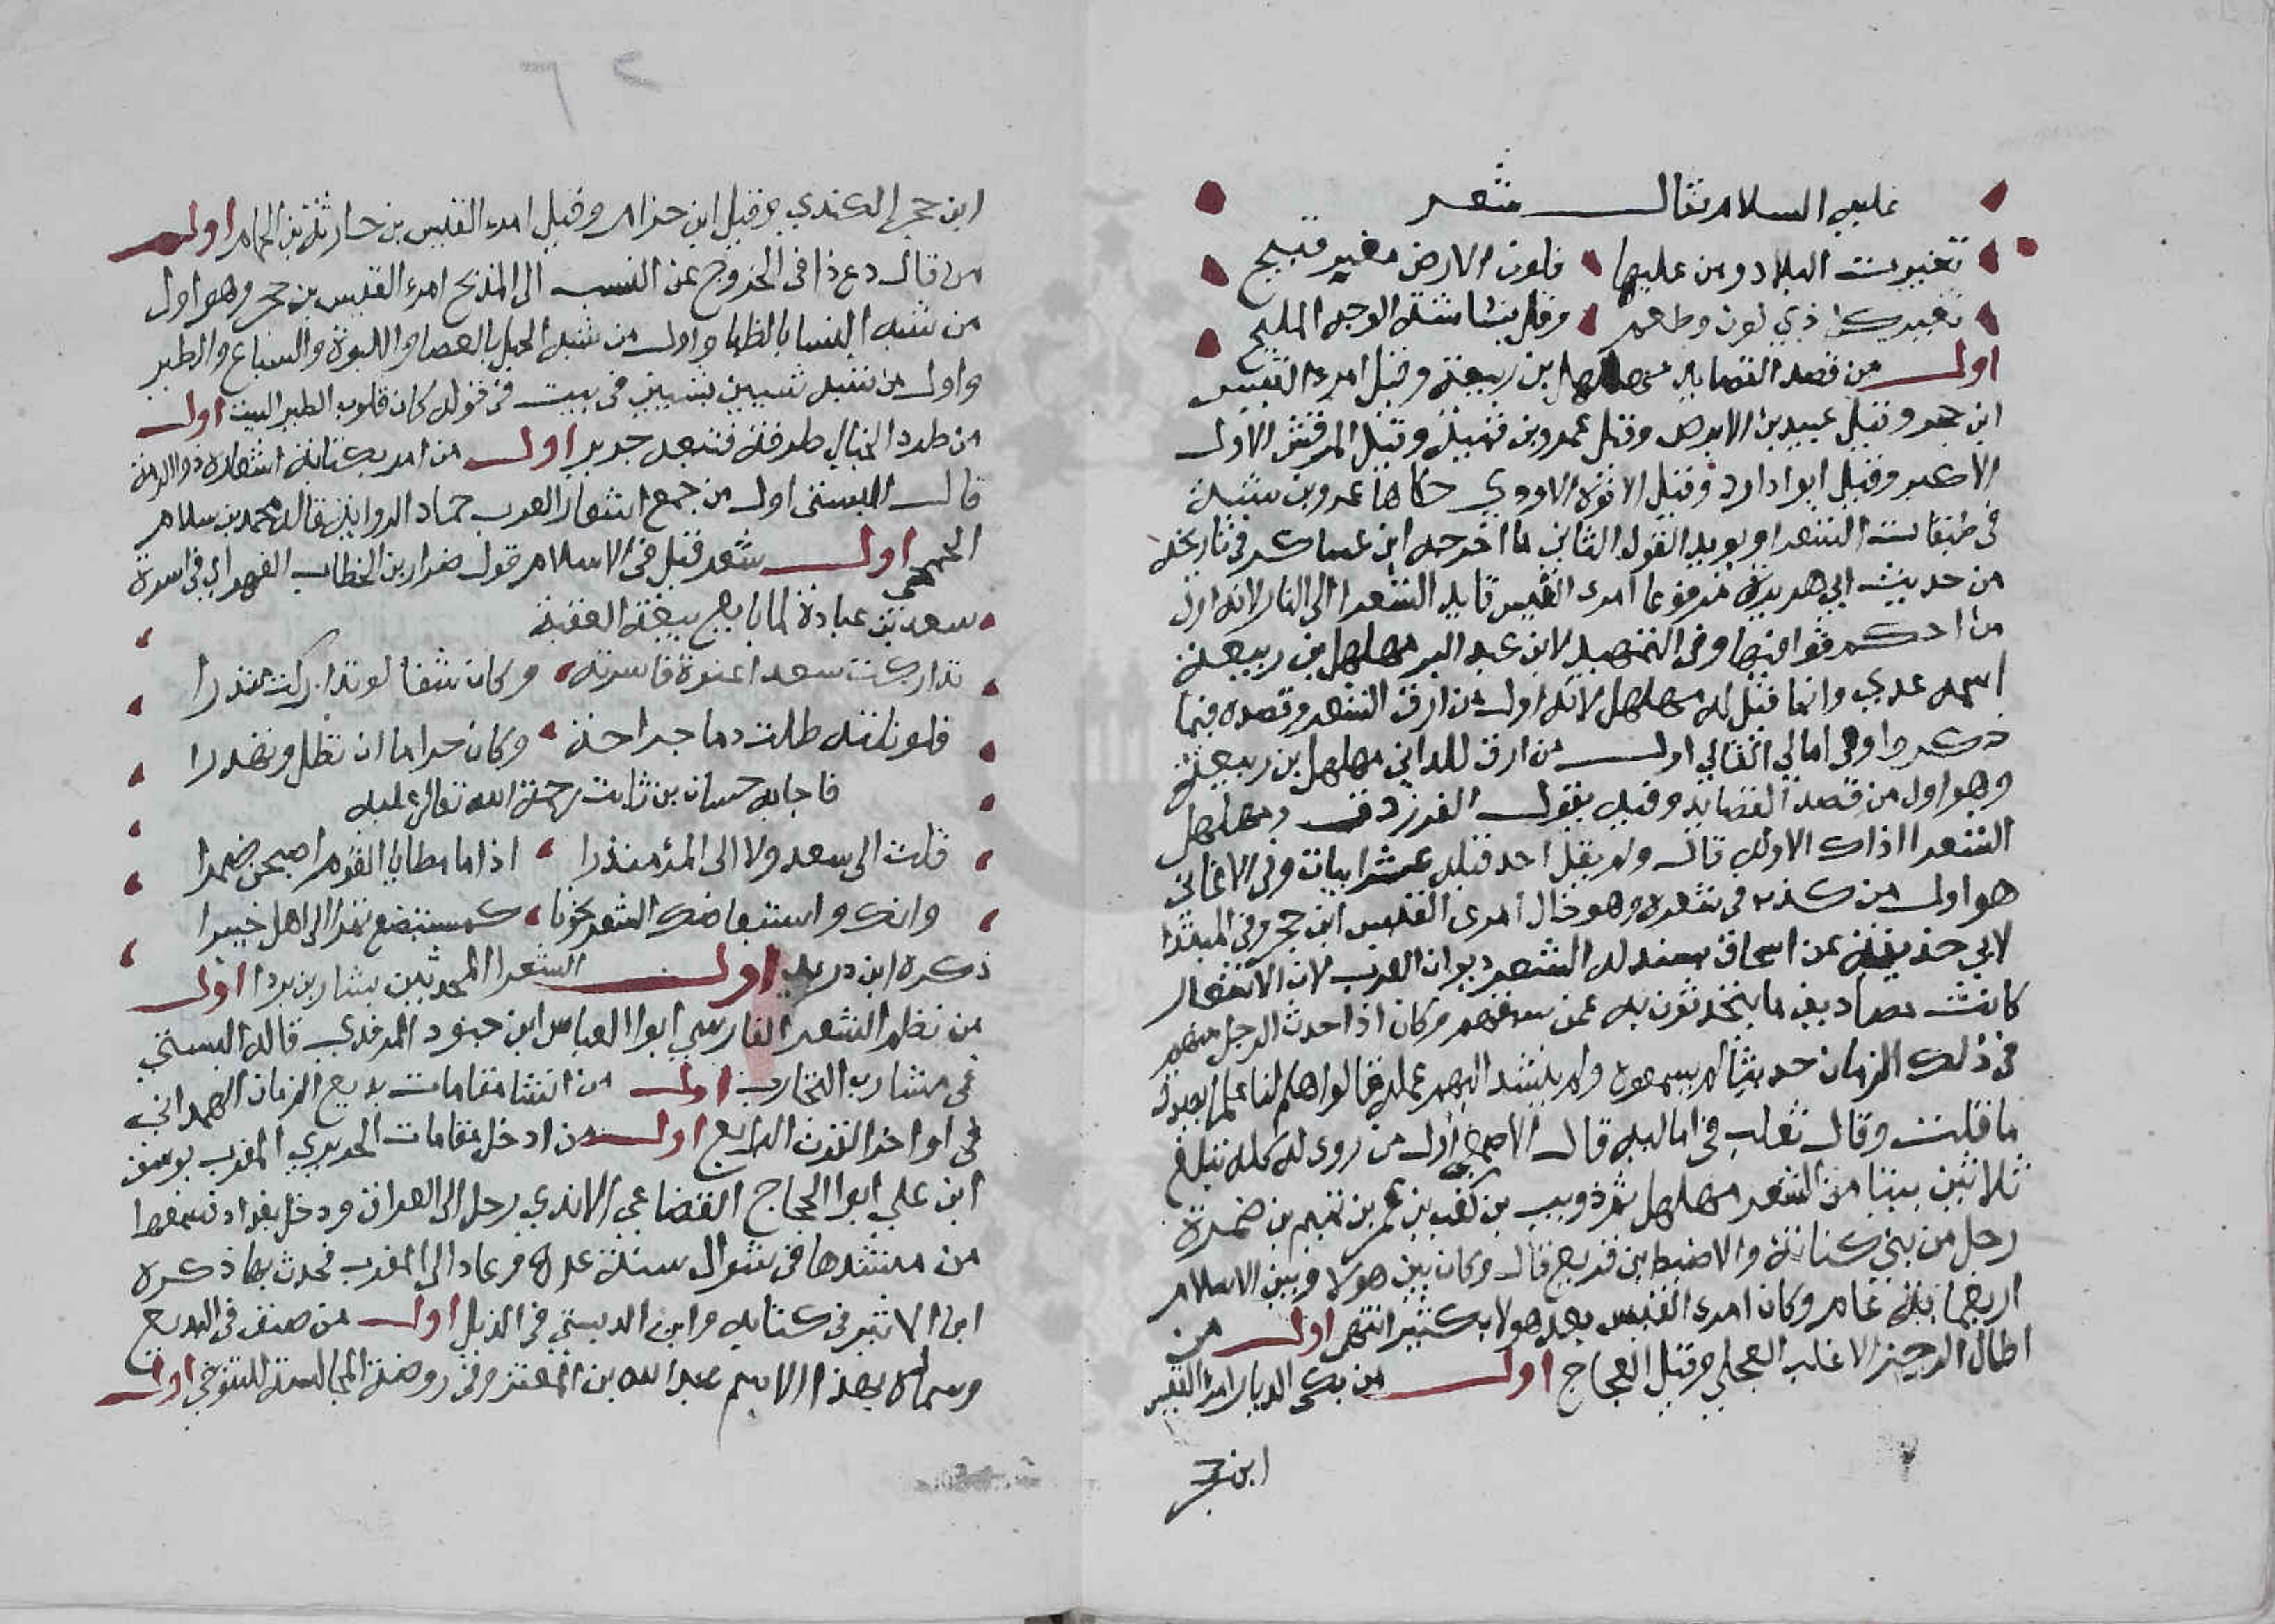 عليه السلام فقال شعر
تغيرت البلاد ومن عليها فلون الارض مغبر قبيح
تغير كل ذي لون وطعم وقل بشاشة الوجه المليح
اول من قصد القصايد مهلهل بن ربيعة وقيل امرء القيس
ابن حجر وقيل عبيد بن الابرص وقيل عمرو بن قميئة وقيل المرقش الاول
الاكبر وقيل ابوا داود وقيل الافوه الاودي حكاها عمر وبن شبة
في طبقات الشعرا ويويد القول الثاني ما اخرجه ابن عساكر في تاريخه
من حديث ابي هريرة مرفوعا امرء القيس قايد الشعرا الى النار لانه اول
من احكم قوافيها وفي التمهيد لابن عبد البر مهلهل بن ربيعة
اسمه عدي وانما قيل له مهلهل لانه اول من ارق الشعر وقصده فيما
ذكروا وفي امالي القالي اول من ارق المراثي مهلهل بن ربيعة
وهو اول من قصد القصايد وفيه يقول الفرزدق ومهلهل
الشعرا اذاك الاول قال ولم يقل احد قبله عشر ابيات وفي الاغاني
هو اول من كذب في شعره وهو خال امرى القيس ابن حجر وفي المبتدا
لابي حذيفة عن اسحاق بسند له الشعر ديوان العرب لان الاشعار
كانت مصاديق ما يتحدثون به عمن سبقهم وكان اذا حدث الرجل منهم
في ذلك الزمان حديثا لم يسمعوه ولم ينشد اليهم عمله فقالوا هلم لنا علما يصدق
ما قلت وقال ثعلب في اماليه قال الاصمعي اول من روى له كلمة تبلغ
ثلاثين بيتا من الشعر مهلهل ثم ذويب بن كعب بن عمر بن تميم بن ضمرة
رجل من بني كنانة والاضبط بن قريع قال وكان بين هولا وبين الاسلام
اربعماية عام وكان امرء القيس بعد هولا بكثير انتهى اول من
اطال الرجز الاغلب العجلي وقيل العجاج اول من بكى الديار امرء القيس
ابن حجر
٦٢
ابن حجر الكندي وقيل ابن حزام وقيل امرء القيس بن حارثة بن الحمام اول
من قال دع ذا في الخروج عن النسب الى المديح امرء القيس بن حجر وهو اول
من شبه النسا بالظبا واول من شبه الخيل بالعصا واللبوة والسباع والطير
واول من شبه شيين بشيين في بيت في قوله كان قلوب الطير البيت اول
من طرد الخيال طرفة فشعر جرير اول من امر بكتابة اشعاره ذو الرمة
قال البستي اول من جمع اشعار العرب حماد الرواية قاله محمد بن سلام
الجمحي اول شعر قيل في الاسلام قول ضرار بن الخطاب الفهرى في اسرة
سعد بن عبادة لما بايع بيعة العقبة
تداركت سعدا عنوة فاسرته وكان شفا لو تداركت منذرا
فلو نلته طلت دما جراحه وكان حراما ان تطل وتهدرا
فاجابه حسان بن ثابت رحمة الله تعالى عليه
قلت الى سعد ولا الى المؤمنذرا اذا ما مطايا القوم اصبحن ضمرا
وانك واستبضاعك الشعر نحونا كمستبضع تمرا الى اهل خيبرا
ذكره ابن دريد اول الشعرا المحدثين بشار بن بردا اول
من نظم الشعر الفارسي ابوا العباس ابن حبود المروذي قاله البستي
في مشارب التجارب اول من انشا مقامات بديع الزمان الهمداني
في اواخر القرن الرابع اول من ادخل مقامات الحريري المغرب يوسف
ابن علي ابوا الحجاج القضاعي الاندي رحل الى العراق ودخل بغداد فسمعها
من منشدها في شوال سنة عده وعاد الى المغرب فحدث بها ذكره
ابن الاثير في كتابه وابن الدبيثي في الذيل اول من صنف في البديع
وسماه بهذا الاسم عبد الله بن المعتز وفي روضة المجالسة للتنوخي اول